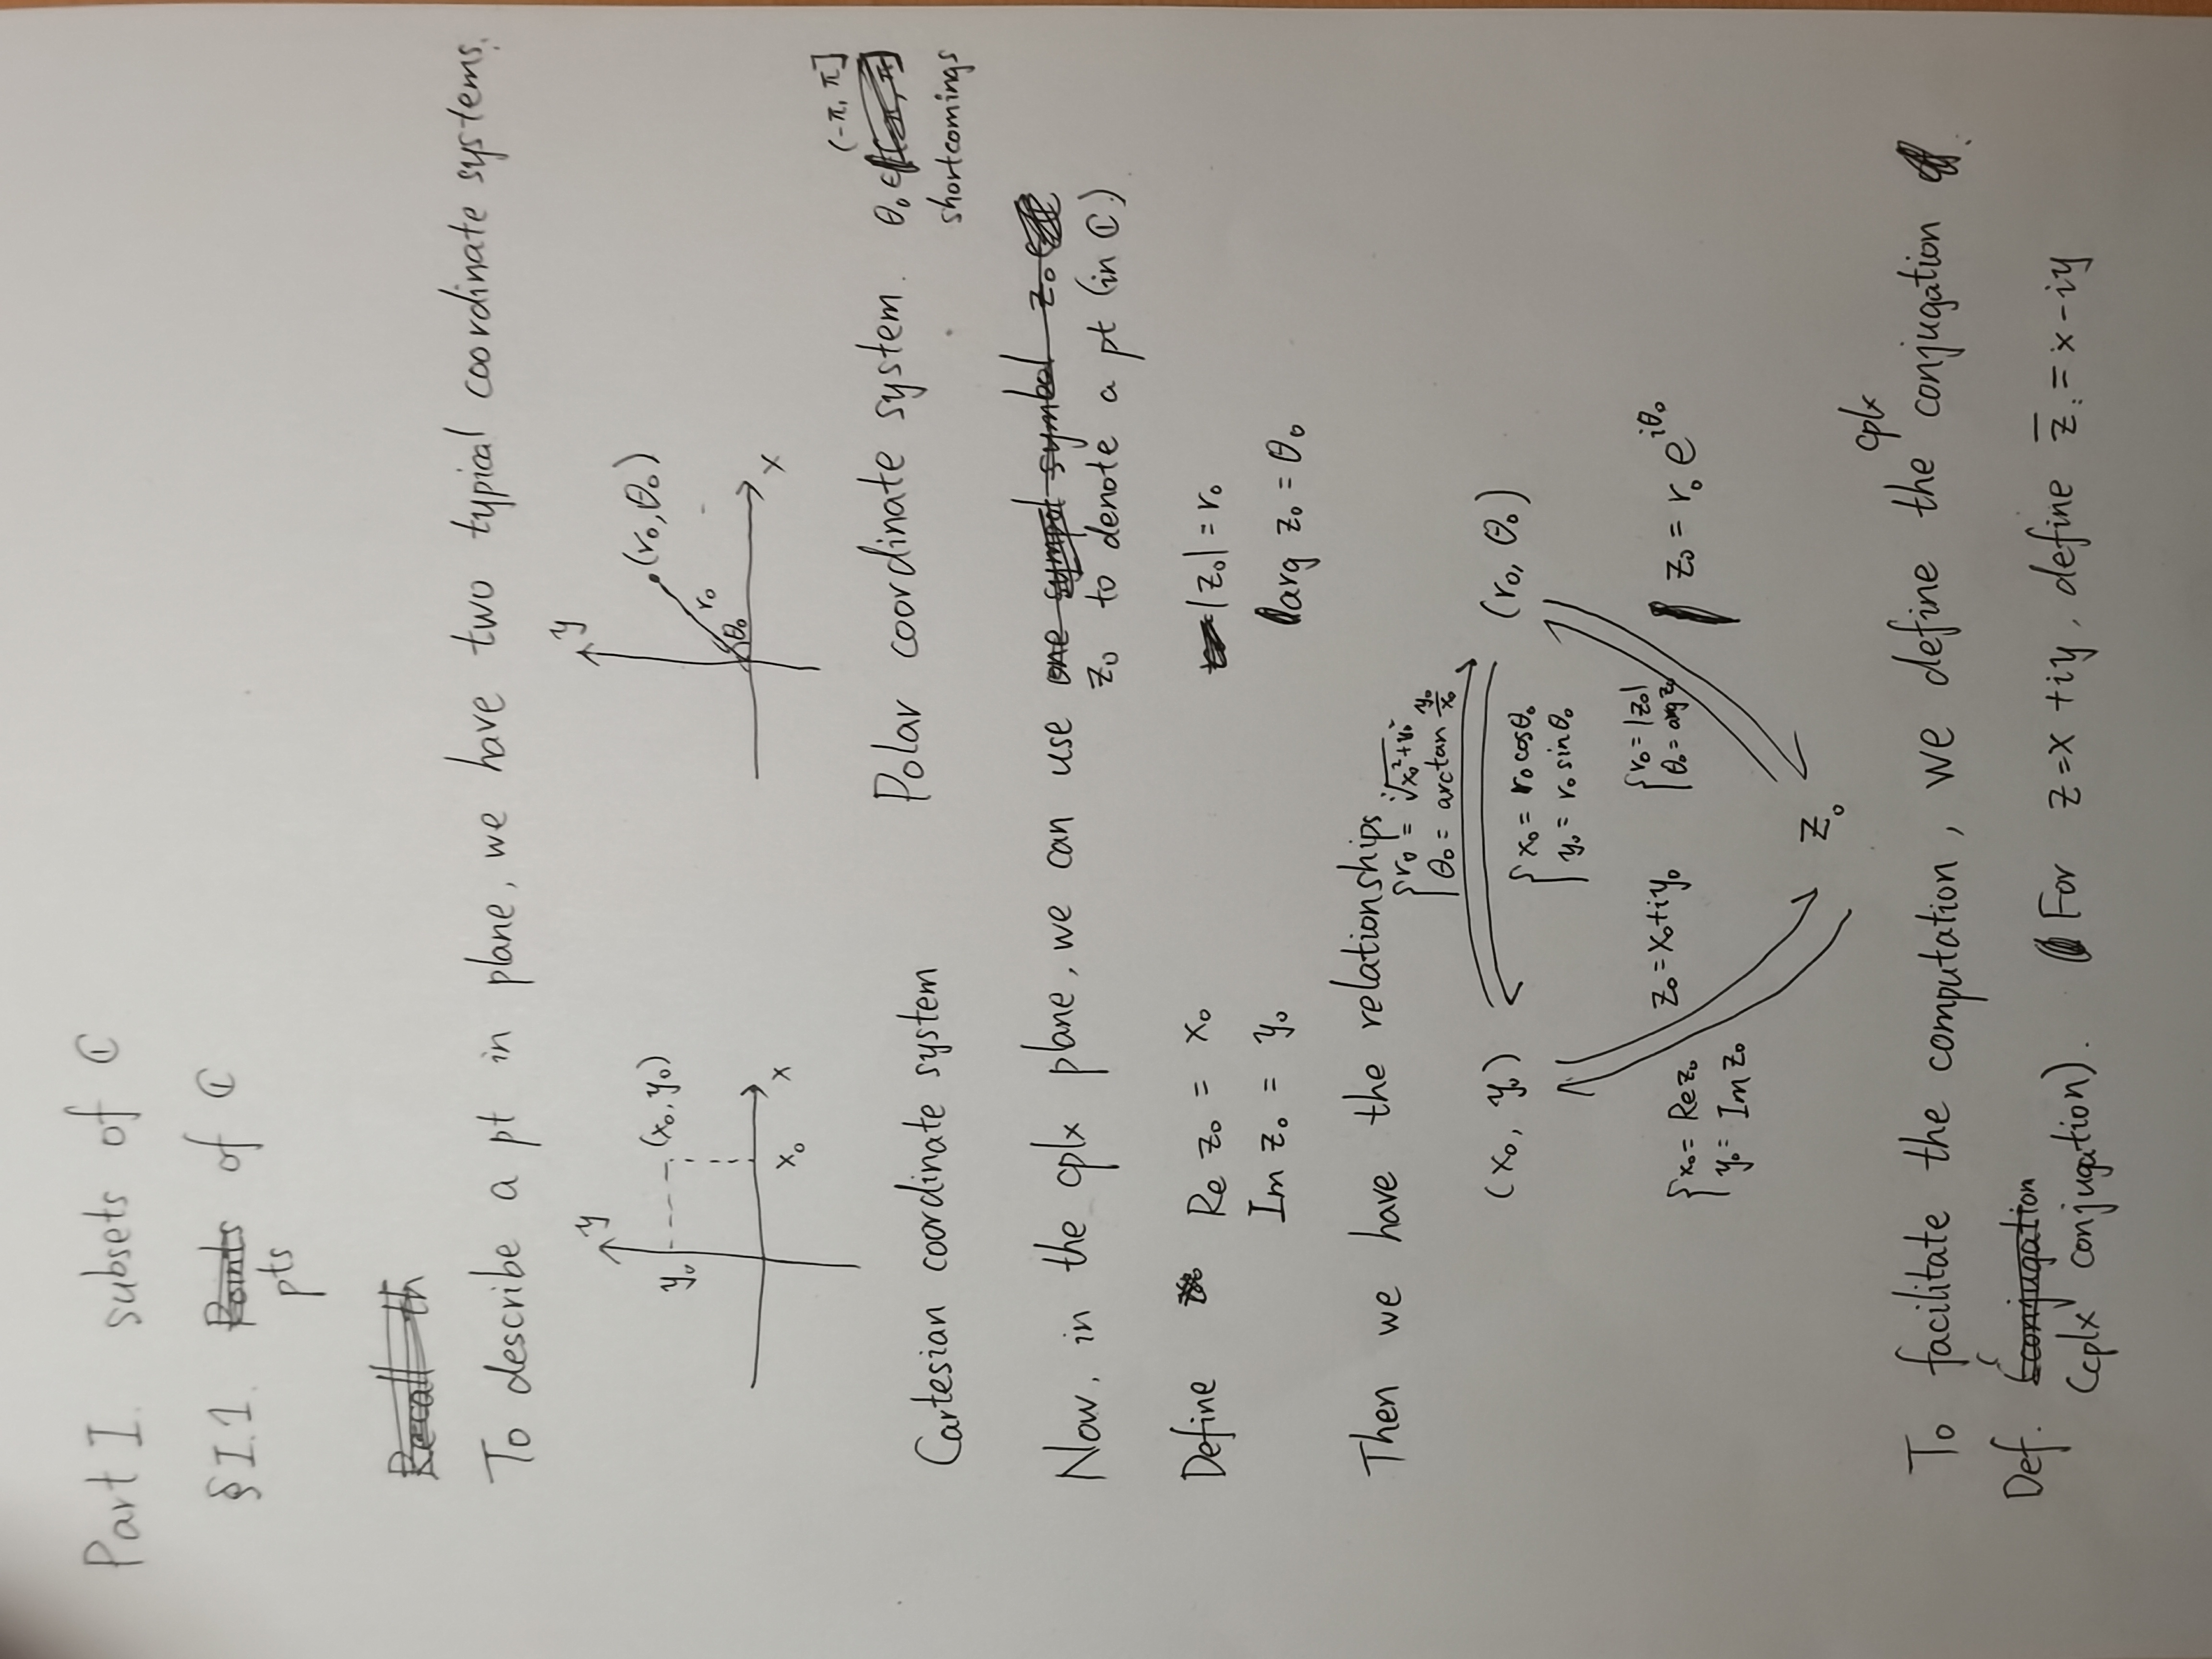 Part I. subsets of ℂ
§I.1. Points of ℂ
pts
Recall th
To describe a pt in plane, we have two typical coordinate systems.
y
y₀
(x₀, y₀)
x₀
x
y
(r₀, θ₀)
r₀
θ₀
x
Cartesian coordinate system
Polar coordinate system. θ₀ ∈ (-π, π]
shortcomings
Now, in the cplx plane, we can use one symbol z₀
z₀ to denote a pt (in ℂ.)
Define Re z₀ = x₀
Im z₀ = y₀
|z₀| = r₀
arg z₀ = θ₀
Then we have the relationships.
{ r₀ = √(x₀² + y₀²)
θ₀ = arctan y₀/x₀
(x₀, y₀)
(r₀, θ₀)
{ x₀ = r₀ cosθ₀
y₀ = r₀ sinθ₀
{ x₀ = Re z₀
y₀ = Im z₀
z₀ = x₀ + iy₀
{ r₀ = |z₀|
θ₀ = arg z₀
z₀ = r₀ e^{iθ₀}
z₀
To facilitate the computation, we define the cplx conjugation.
Def. (conjugation
(cplx conjugation). For z = x + iy, define z̄ := x - iy